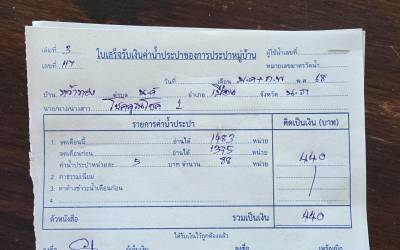 เล่มที่ 3 ใบเสร็จรับเงินค่าน้ำประปาของการประปาหมู่บ้าน ผู้ใช้น้ำเลขที่
เลขที่ 117 หมายเลขมาตรวัดน้ำ
วันที่ เดือน ม.ค+ก.พ พ.ศ. 68
บ้าน ตำบล อำเภอ เมือง จังหวัด
นาย/นาง/นางสาว 1
รายการค่าน้ำประปา คิดเป็นเงิน (บาท)
1. จดเดือนนี้ อ่านได้ 1483 หน่วย
จดเดือนก่อน อ่านได้ 1395 หน่วย 440
ค่าน้ำประปาหน่วยละ 5 บาท จำนวน 88 หน่วย
2. ค่าธรรมเนียม
3. ค่าค้างชำระน้ำเดือนก่อน
4.
ตัวหนังสือ รวมเป็นเงิน 440
ได้รับเงินไว้ถูกต้องแล้ว